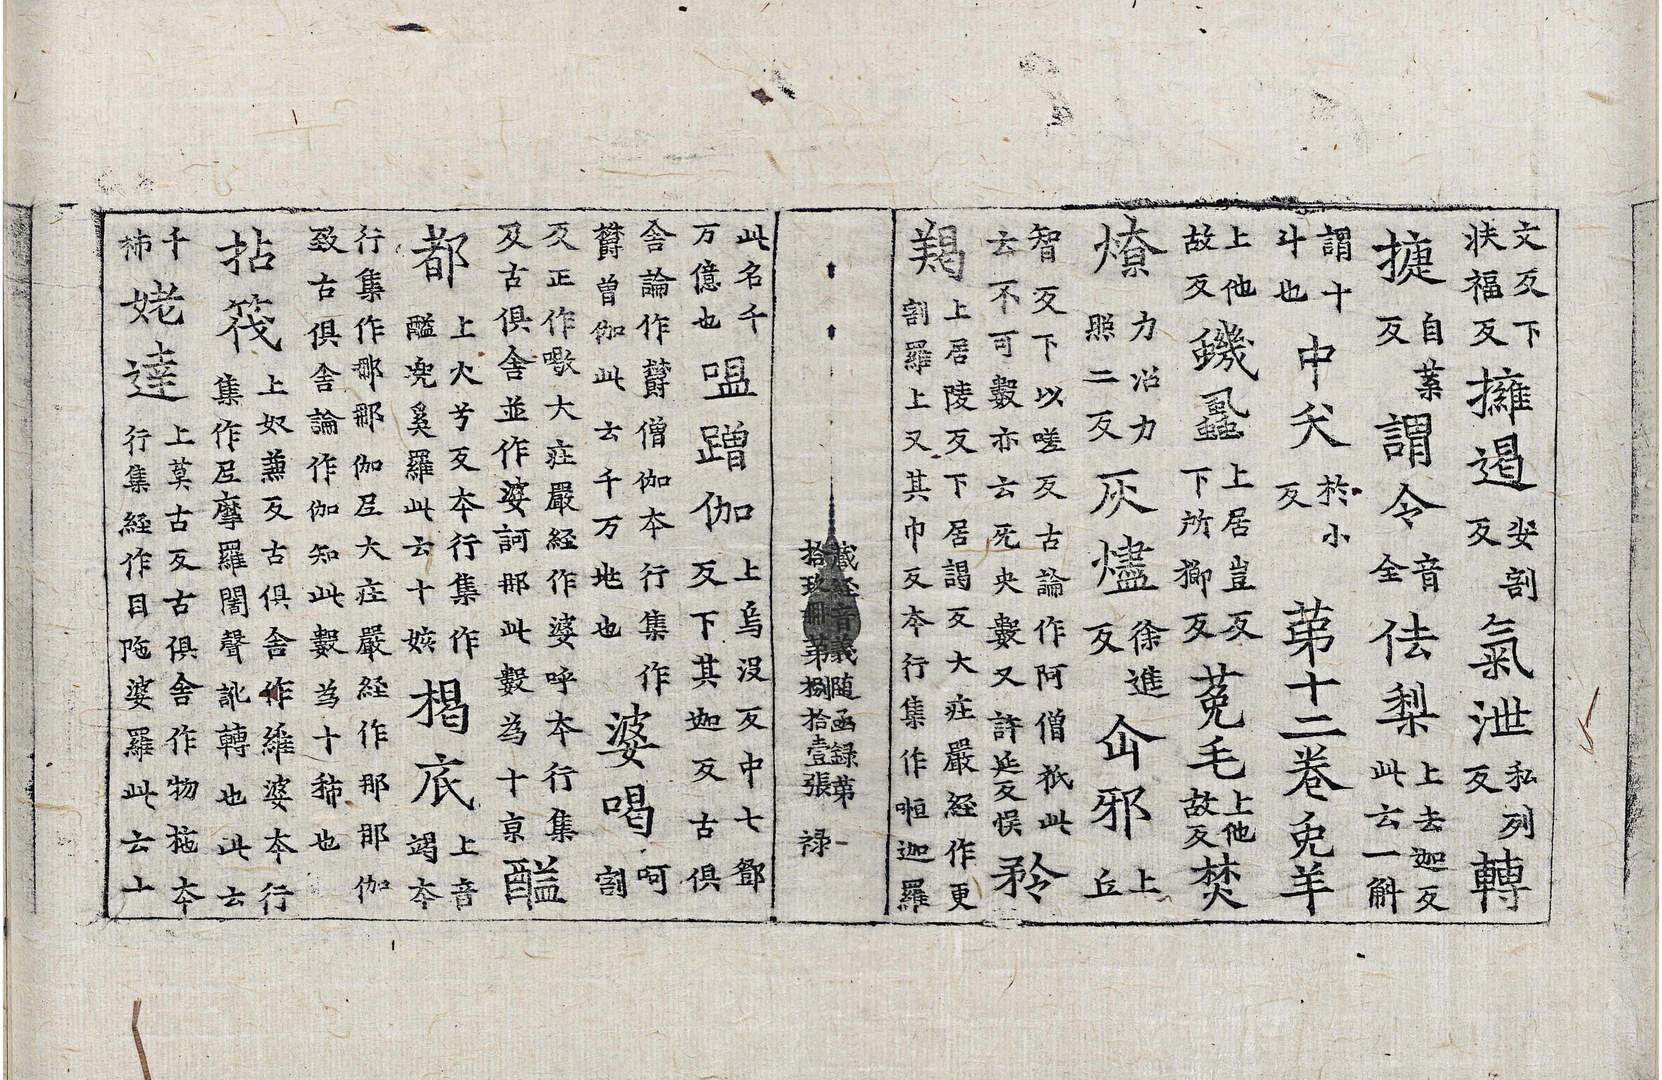 文反下扶福反擁遏安割反氣泄私列反轉
㨗自葉反謂令音全佉梨上去迦反此云一斛
謂十斗也中夭於小反第十二卷兔羊
上他故反蟣蝨上居豈反下所擳反菟毛上他故反焚
燎力沼力照二反灰燼徐進反㐰邪上丘
智反下以嗟反古論作阿僧祇此云不可數亦云死央數又許延反悮矜
羯上居陵反下居謁反大莊嚴經作更割羅上又其巾反本行集作恒迦羅
藏經音義随函録第一
拾玖冊 第捌拾壹張 禄
此名千万億也嗢蹭伽上烏沒反中七鄧反下其迦反古俱
舍論作欝僧伽本行集作欝曽伽此云千万地也婆喝呵割
反正作噉大莊嚴經作婆呼本行集及古俱舍並作婆訶那此數為十京醯
都上火兮反本行集作醯兠奚羅此云十姟朅底上音竭本
行集作那那伽𡰱大莊嚴経作那那伽致古俱舍論作伽知此數為十秭也
拈筏上奴兼反古俱舍作維婆本行集作𡰱摩羅闍聲訛轉也此云
千秭姥達上莫古反古俱舍作物拖本行集経作目陁婆羅此云十